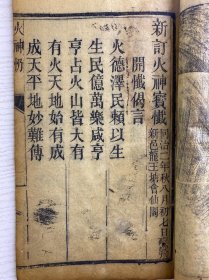 新訂火神寳懺
同治二年秋八月初七日
新邑龍王塘會仙閣
開懺偈言
火德澤民賴以生
生民億萬樂咸亨
亨占火山皆大有
有火天地始有成
成天平地妙難傳
火神懺